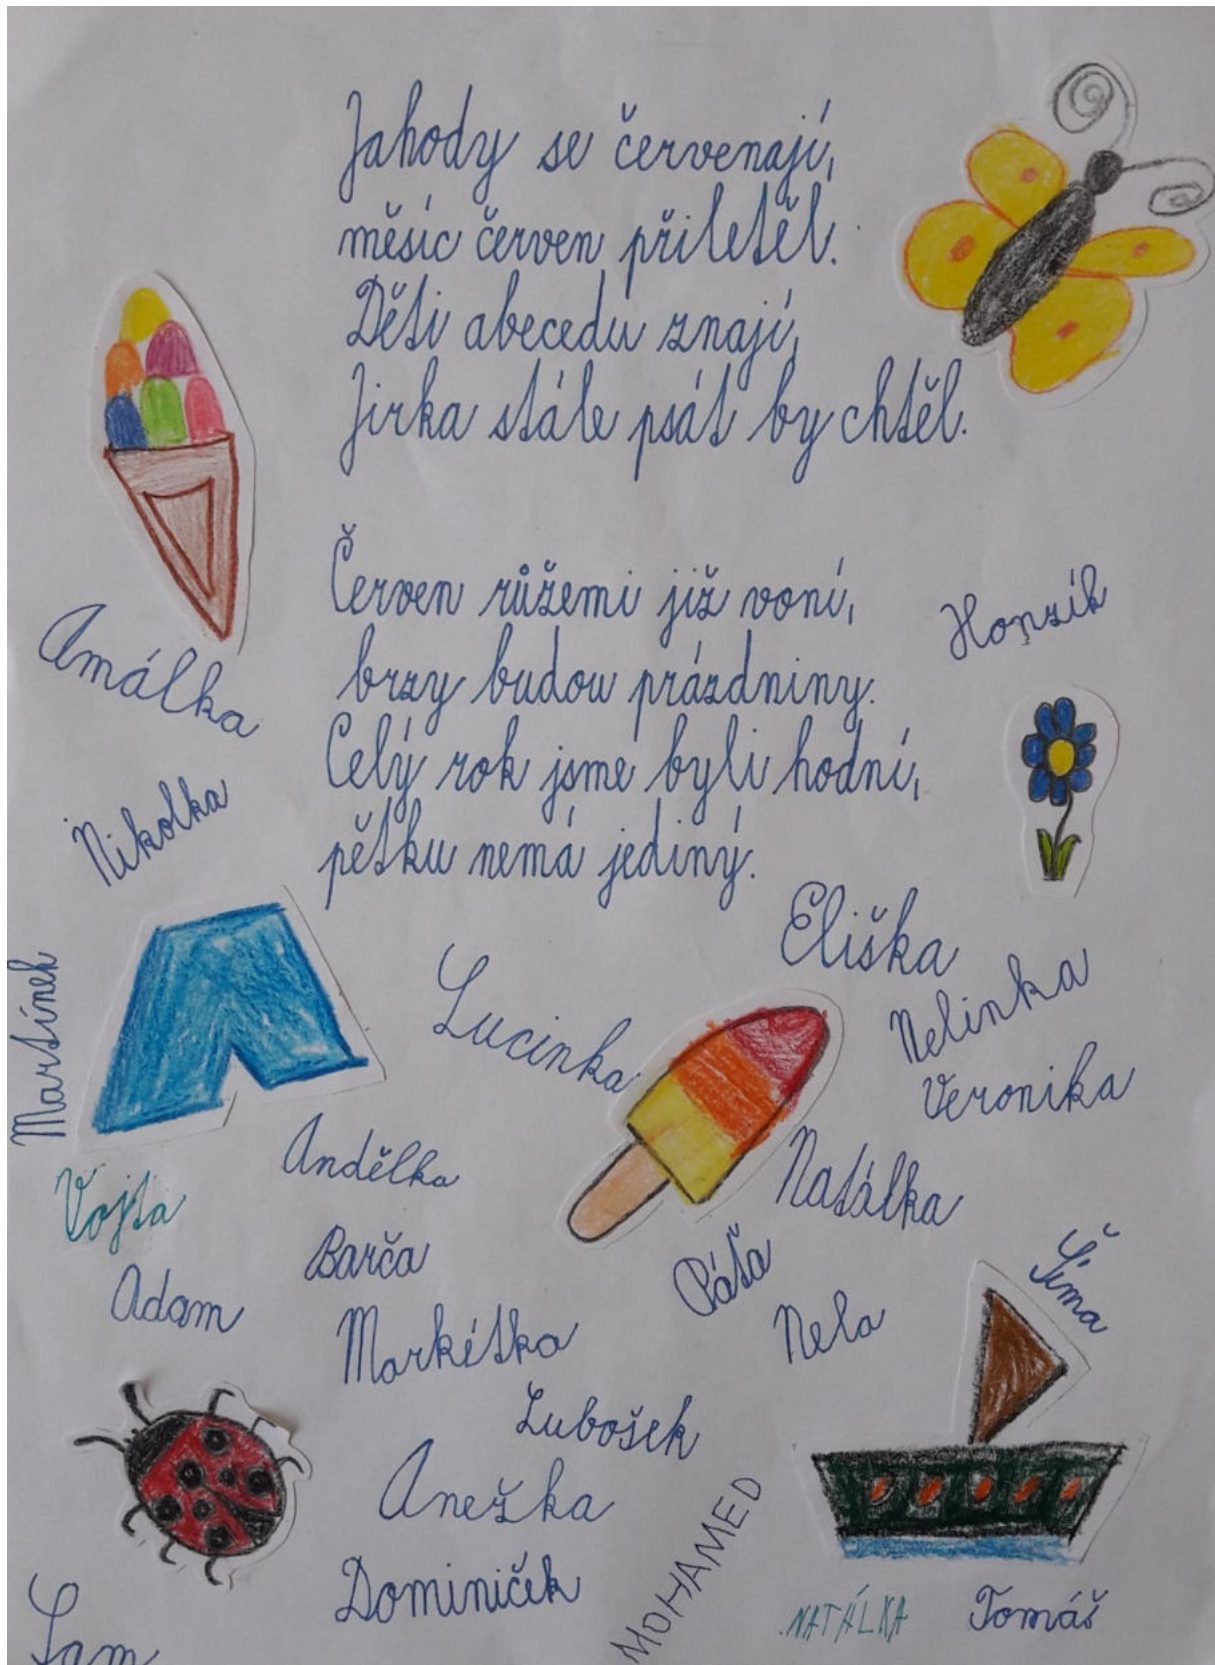 Jahody se červenají,
měsíc červen přiletěl.
Děti abecedu znají,
Jirka stále psát by chtěl.
Červen růžemi již voní,
brzy budou prázdniny.
Celý rok jsme byli hodní,
pětku nemá jediný.
Honzík
Amálka
Nikolka
Eliška
Martínek
Lucinka
Nelinka
Veronika
Andělka
Natálka
Vojta
Barča
Páťa
Šíma
Adam
Markétka
Nela
Lubošek
Anežka
MOHAMED
Dominiček
NATÁLKA
Tomáš
Sam